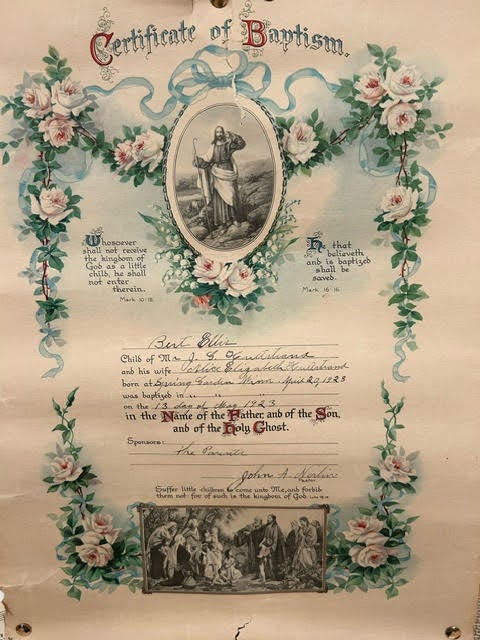 Certificate of Baptism.
Whosoever
shall not receive
the kingdom of
God as a little
child, he shall
not enter
therein.
Mark 10-15
He that
believeth
and is baptized
shall be
saved.
Mark 16-16
Bert Ellis
Child of Mr. J. E.
and his wife Alice Elizabeth
born at Spring Garden Minn. April 20, 1923
was baptized in " " "
on the 13 day of May 1923
in the Name of the Father, and of the Son,
and of the Holy Ghost.
Sponsors:
The Parents
John A. Norlin
Pastor
Suffer little children to come unto Me, and forbid
them not: for of such is the kingdom of God.